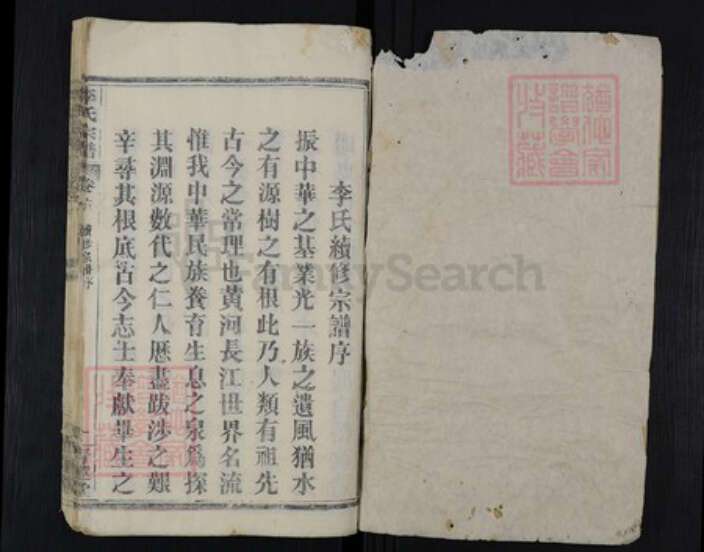 李氏續修宗譜序
振中華之基業光一族之遺風猶水
之有源樹之有根此乃人類有祖先
古今之常理也黄河長江世界名流
惟我中華民族養育生息之泉爲探
其淵源數代之仁人歷盡跋涉之艱
辛尋其根底古今志士奉獻畢生之
李氏宗譜
卷首
續修宗譜序
FamilySearch